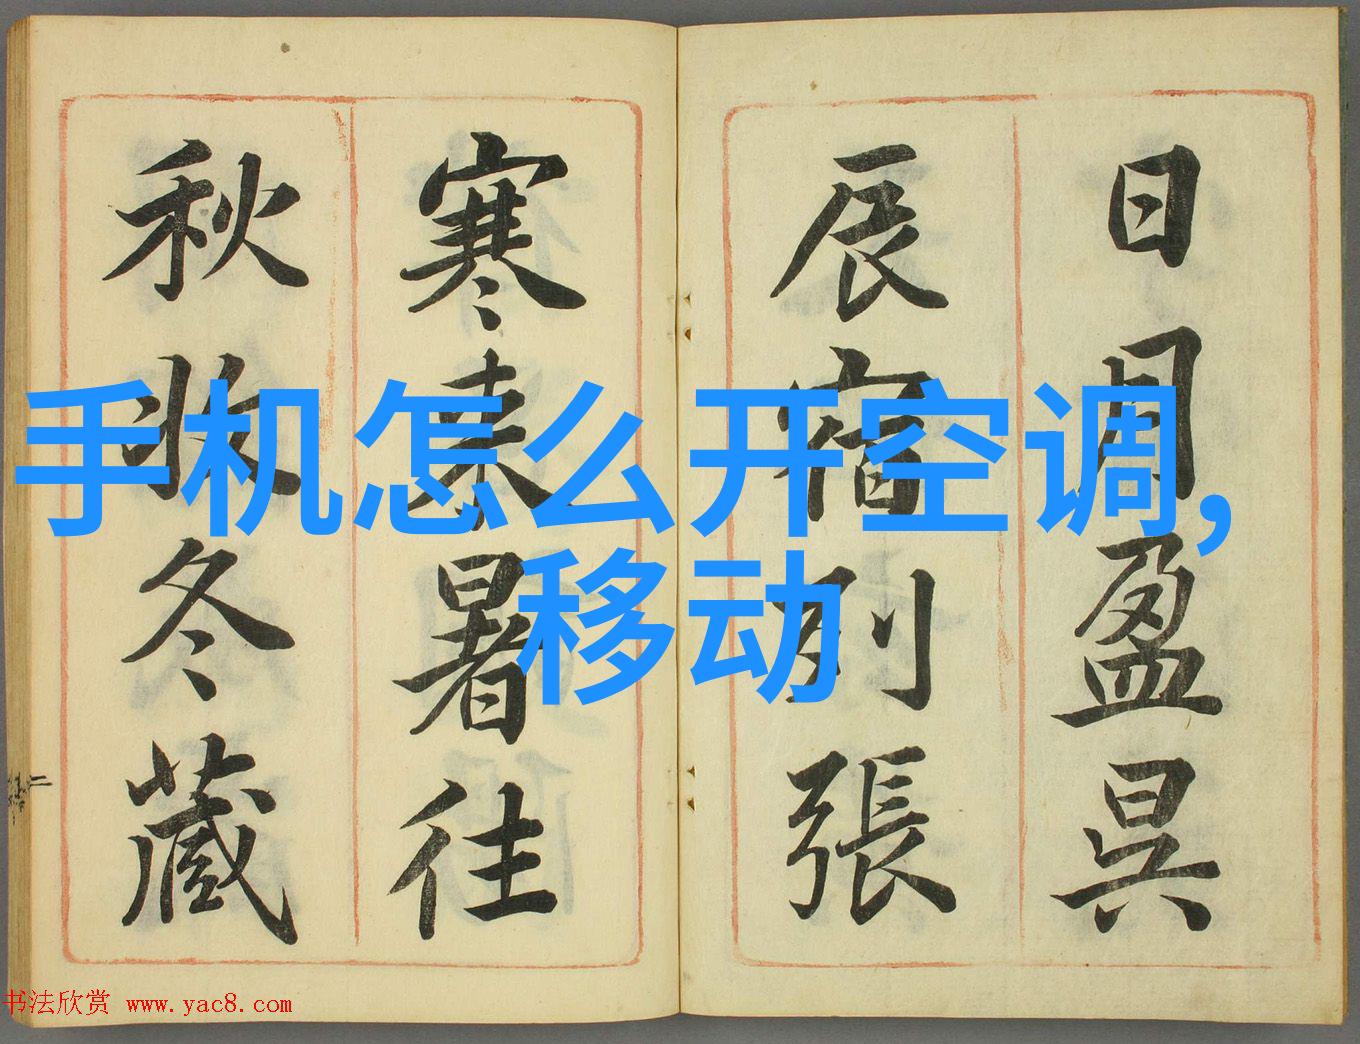 日月盈昃
辰宿列張
寒來暑往
秋收冬藏
手机怎么开空调,
移动
书法欣赏 www.yac8.com